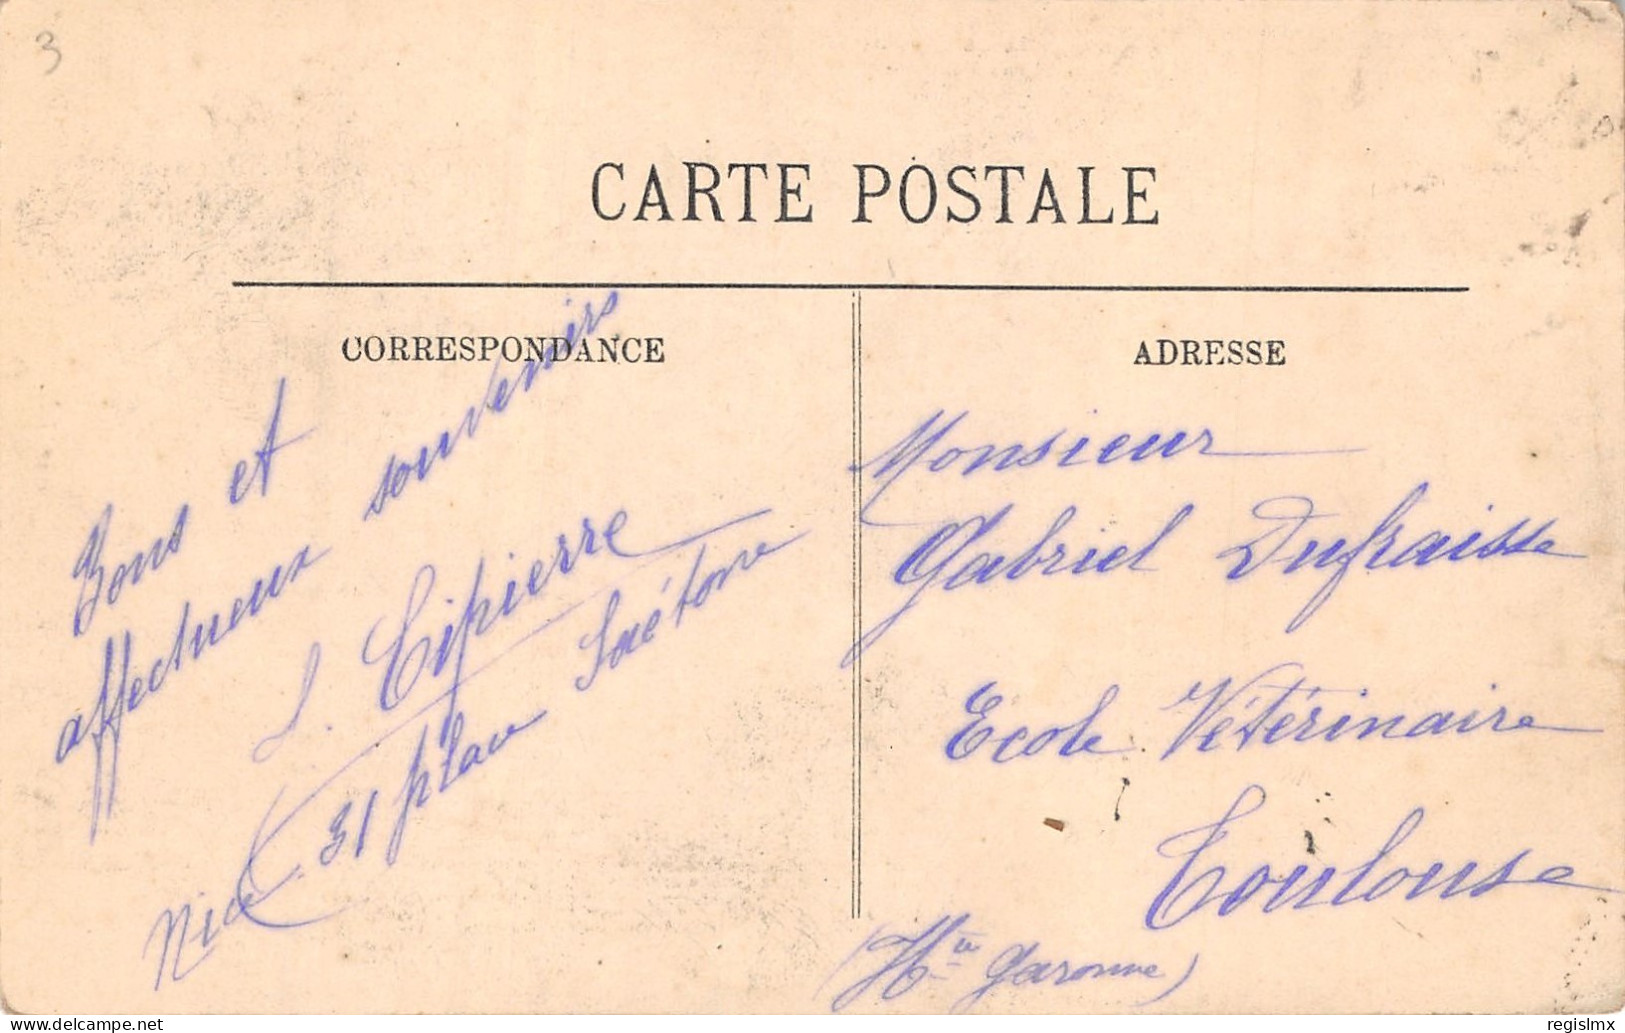 3
CARTE POSTALE
CORRESPONDANCE
Bons et
affectueux souvenirs
L. Cipierre
Nice 31 place Saëtone
ADRESSE
Monsieur
Gabriel Dufraisse
Ecole Vétérinaire
Toulouse
(Hte Garonne)
regislmx